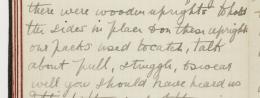 there were wooden uprights to hold
the sides in place & on these uprights
our packs used to catch, talk
about pull, struggle, & swear
well you should have heard us